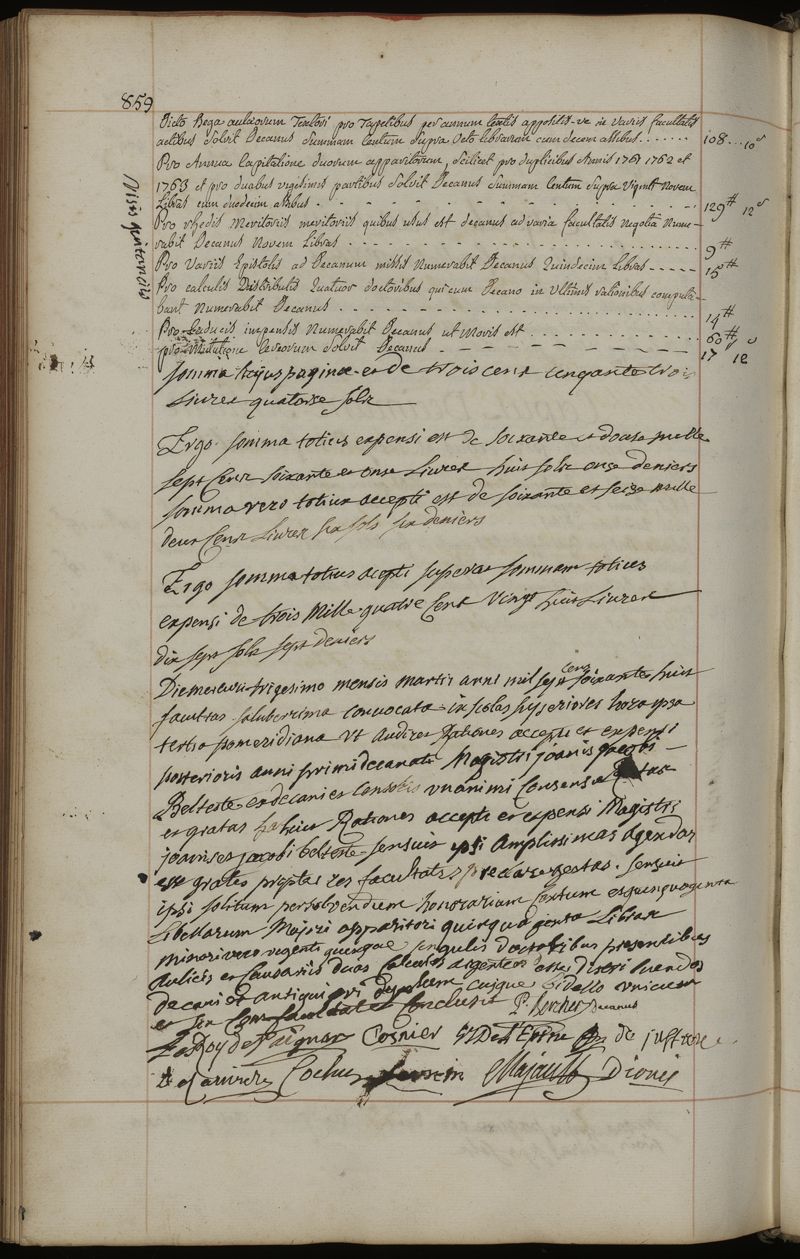 859
Dicto Bega aulæorum Textori pro Tapetibus per annum textis appositis-ve in variis facultatis
actibus solvit Decanus summam Centum supra Octo librarum cum decem assibus . . . . . . 108 . . . 10 s
Pro Annua Capitatione duorum apparitorum, scilicet pro duplicibus Annis 1761 1762 et
1763 et pro duabus vigesimis partibus solvit Decanus summam Centum supra viginti Novem
Libras cum duodecim assibus . . . . . . 129 ♯ 12 s
Visis quitanciis
Pro rhedis Meritoriis quibus usus est decanus ad varia facultatis negotia Nume-
rabit Decanus Novem Libras . . . . . . 9 ♯
Pro Variis Epistolis ad Decanum missis Numerabit Decanus Quindecim Libras - - - - - 15 ♯
Pro calculis Distributis Quatuor doctoribus qui cum Decano in Ultimis rationibus computa-
bant Numerabit Decanus . . . . . . 14 ♯
Pro Caducis impensis Numerabit Decanus ut Moris est . . . . . . 60 ♯
pro Mutatione solvit Decanus - - - - - 17 12
somma hujus paginæ est de trois cent cinquante trois
Livres quatorse sols
Ergo somma totius expensi est de soixante et douse mille
sept Cent soixante et onse Livres huit sols onze deniers
somma vero totius accepti est de soixante et seise mille
deux Cent Livres six sols six deniers
Ergo somma totius acepti superat sommam totius
expensi de trois Mille quatre Cent Vingt huit Livres
dix sept sols sept deniers
Die mercurii trigesimo mensis martii anni mil sept Cent soixante huit
facultas saluberrima convocata in scolas superiores hora
tertia pomeridiana Ut audiret Rationes accepti et expensi
posterioris anni primi decanatus Magistri joanis jacobi
Belleteste exdecani et Censoris unanimi Consensu ratas
et gratas habuit Rationes accepti et expensi Magistri
joannis jacobi belleteste censuit ipsi amplissimas agendas
esse grates propter res facultatis præclare gestas. Censuit
ipsi solitum persolvendum honorarium sextum et quinquaginta
Libellarum Majori apparitori quinquaginta Libras
minori vero viginti quinque singulis doctoribus presentibus
auditis et Causariis duos Calculos argenteos esse distribuendos
decani et antiqui cuique bidello unicum
et sic Cum facultate Conclusit P. bercher Decanus
Le Roy de Cosnier de jussieu
Cochu Majault Dionis